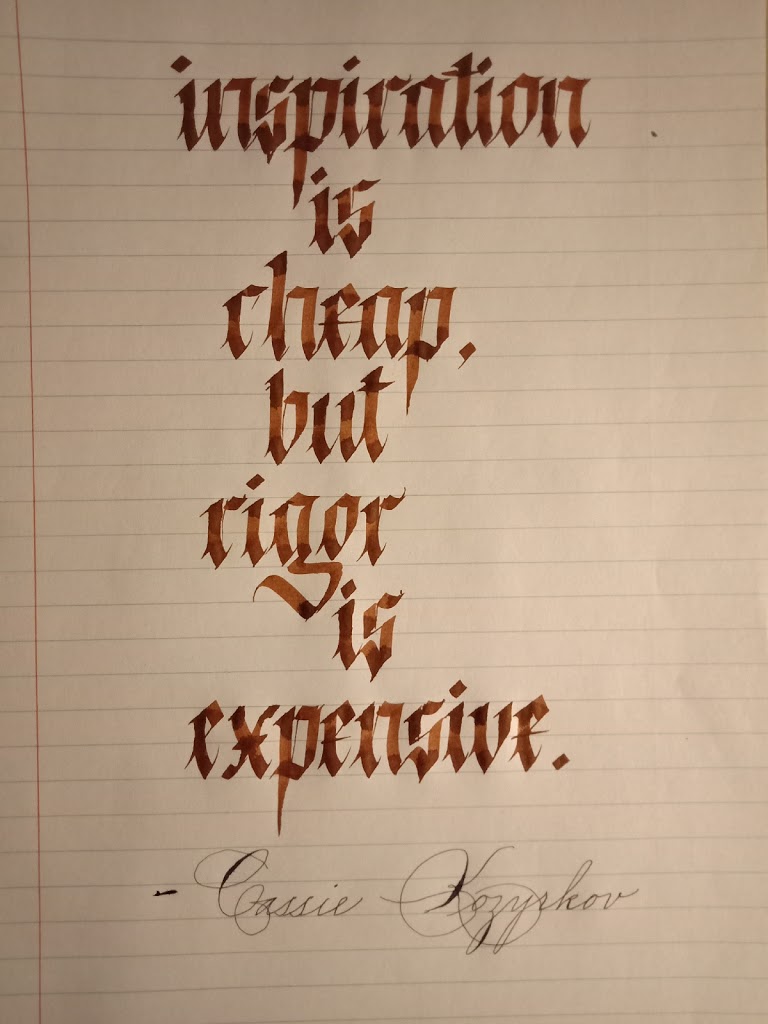 inspiration
is
cheap,
but
rigor
is
expensive.
- Cassie Kozyrkov